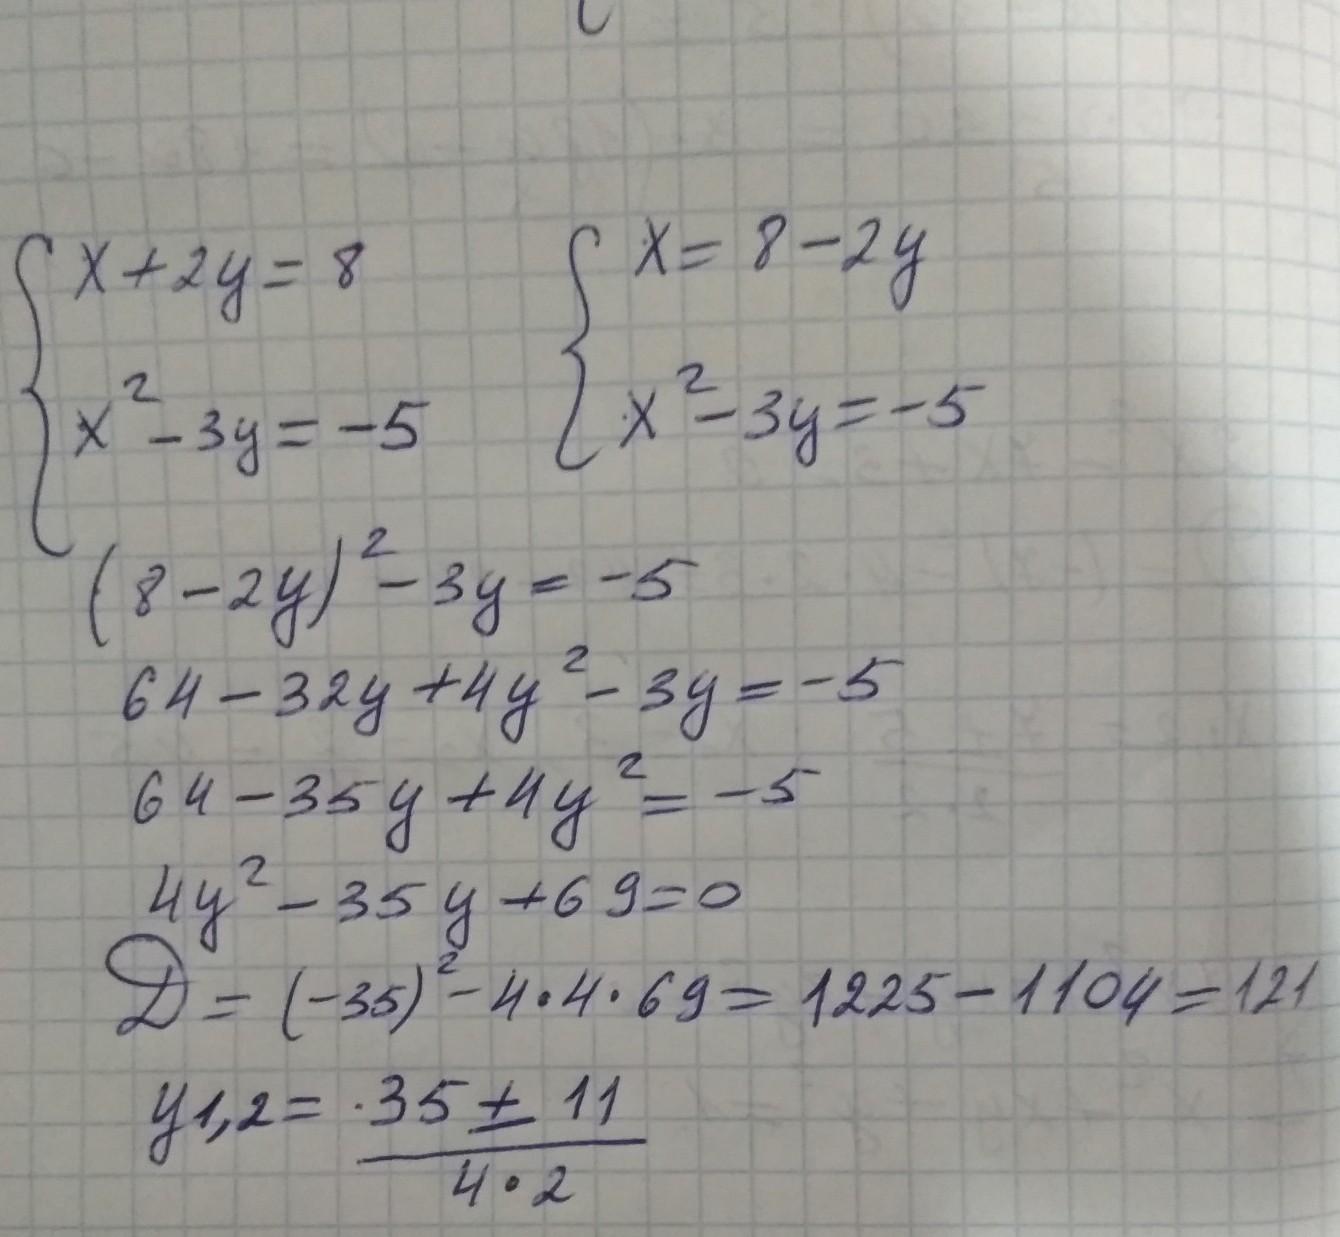 x + 2y = 8
x² - 3y = -5
x = 8 - 2y
x² - 3y = -5
(8 - 2y)² - 3y = -5
64 - 32y + 4y² - 3y = -5
64 - 35y + 4y² = -5
4y² - 35y + 69 = 0
D = (-35)² - 4·4·69 = 1225 - 1104 = 121
y1,2 = 35 ± 11
4·2